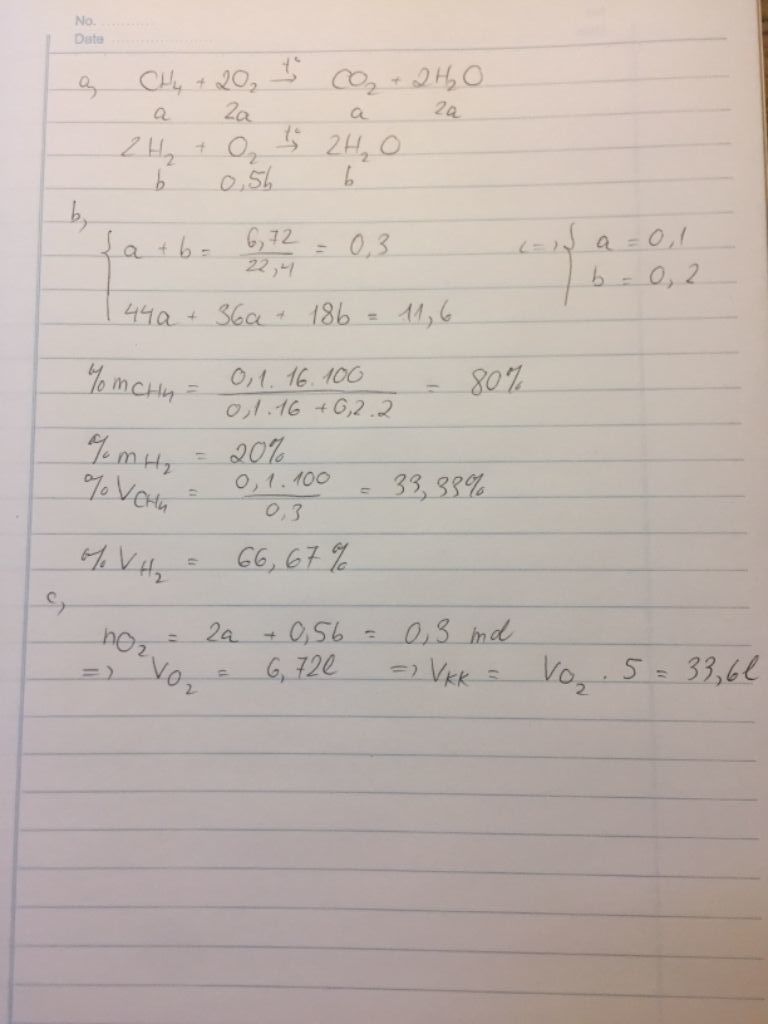 No. ............
Date ........................
a, CH₄ + 2O₂ →(t°) CO₂ + 2H₂O
a 2a a 2a
2H₂ + O₂ →(t°) 2H₂O
b 0,5b b
b,
{ a + b = 6,72/22,4 = 0,3 <=> { a = 0,1
b = 0,2
44a + 36a + 18b = 11,6
%mCH₄ = 0,1.16.100 / 0,1.16 + 0,2.2 = 80%
%mH₂ = 20%
%VCH₄ = 0,1.100 / 0,3 = 33,33%
%VH₂ = 66,67%
c,
nO₂ = 2a + 0,5b = 0,3 mol
=> VO₂ = 6,72l => VKK = VO₂ . 5 = 33,6l